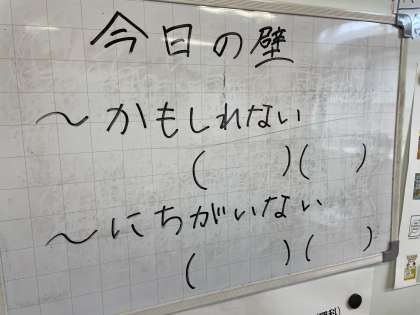 今日の壁
～かもしれない
(　　)(　　)
～にちがいない
(　　)(　　)